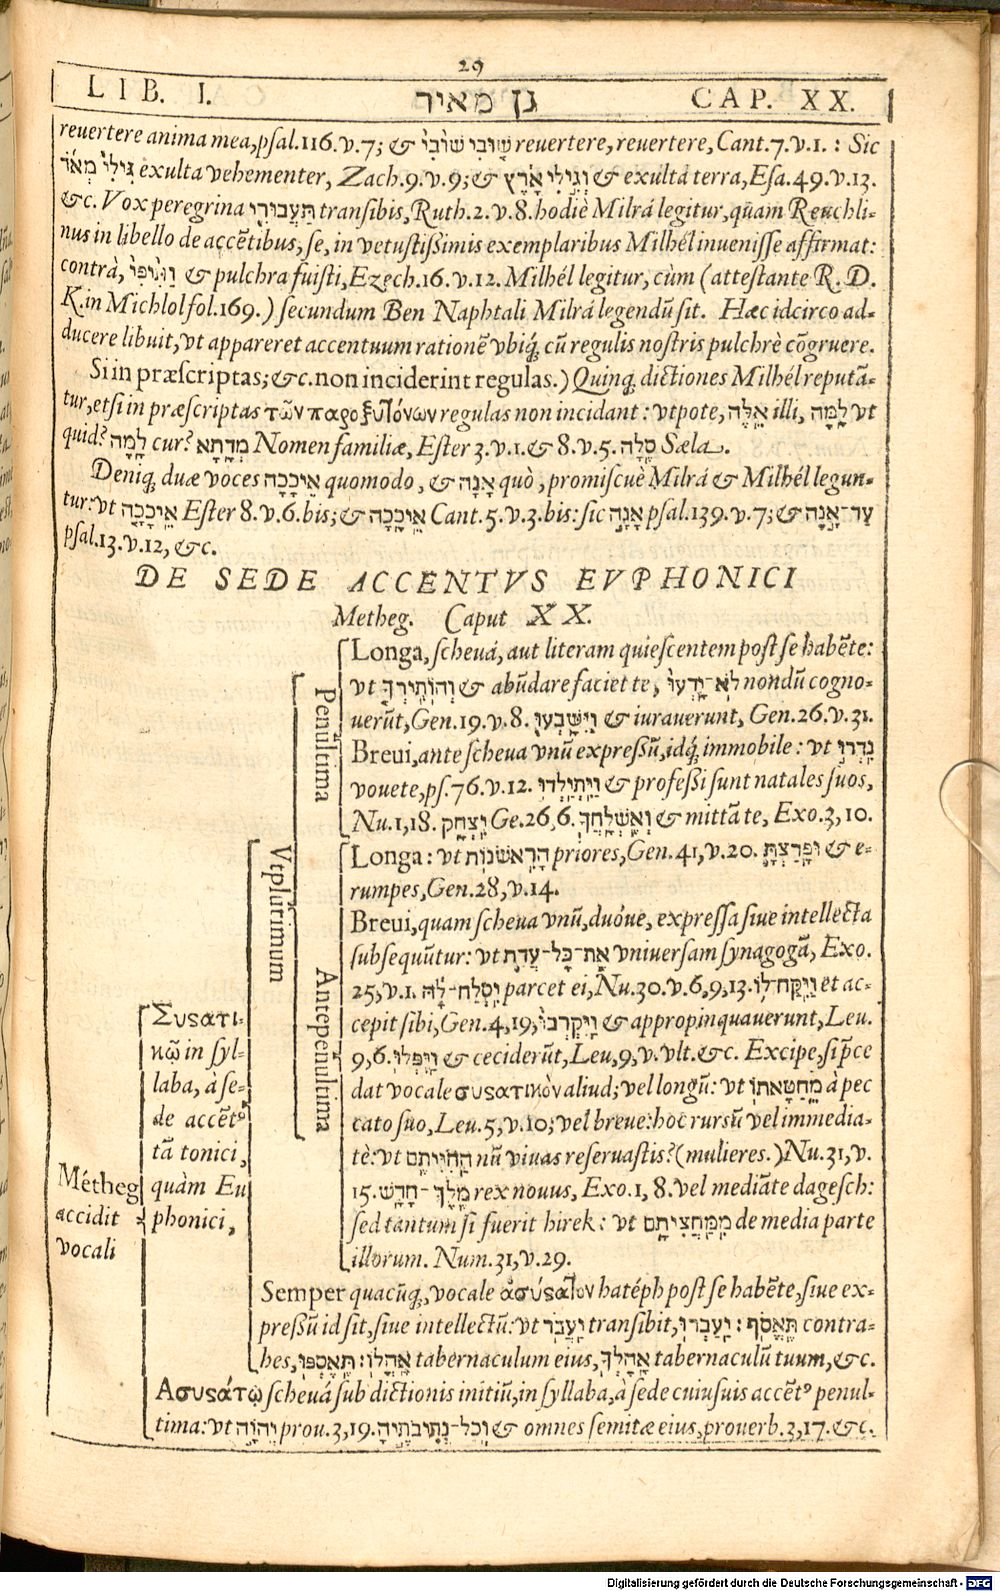 29
LIB. I. גן מאיר CAP. XX.
reuertere anima mea, psal.116.v.7; & שׁוּבִי שׁוּבִי reuertere, reuertere, Cant.7.v.1.: Sic
גִּילִי מְאֹד exulta vehementer, Zach.9.v.9; & וְגִילִי אָרֶץ & exulta terra, Esa.49.v.13.
&c. Vox peregrina תַעֲבוּרִי transibis, Ruth.2.v.8. hodiè Milrá legitur, quam Reuchli-
nus in libello de accẽtibus, se, in vetustißimis exemplaribus Milhél inuenisse affirmat:
contrà, וַתִּיפִי & pulchra fuisti, Ezech.16.v.12. Milhél legitur, cùm (attestante R. D.
K. in Michlol fol.169.) secundum Ben Naphtali Milrá legendũ sit. Hæc idcirco ad-
ducere libuit, vt appareret accentuum rationẽ vbiq́; cũ regulis nostris pulchrè cõgruere.
Si in præscriptas; &c. non inciderint regulas.) Quinq; dictiones Milhél reputã-
tur, etsi in præscriptas τῶν παροξυτόνων regulas non incidant: vtpote, אֵלֶּה illi, לָמָּה vt
quid? לָמָה cur? מְדָתָא Nomen familiæ, Ester 3.v.1. & 8.v.5. סֶלָה Sæla.
Deniq; duæ voces אֵיכָכָה quomodo, & אָנָה quò, promiscuè Milrá & Milhél legun-
tur: vt אֵיכָכָה Ester 8.v.6. bis; & אֵיכָכָה Cant.5.v.3. bis: sic אָנָה psal.139.v.7; & עַד־אָנָה
psal.13.v.12, &c.
DE SEDE ACCENTVS EVPHONICI
Metheg. Caput XX.
Métheg accidit vocali
Συσατι-
κῶ in syl-
laba, à se-
de accẽtꝰ
tã tonici,
quàm Eu
phonici,
Vtplurimum
Penultima
Longa, scheuá, aut literam quiescentem post se habẽte:
vt וְהוֹתִירְךָ & abũdare faciet te, לֹא יָדְעוּ nondũ cogno-
uerũt, Gen.19.v.8. וַיִּשָּׁבְעוּ & iurauerunt, Gen.26.v.31.
Breui, ante scheua vnũ expressũ, idq́; immobile: vt נִדְרוּ
vouete, ps.76.v.12. וַיִּתְיַלְדוּ & professi sunt natales suos,
Nu.1,18. יִצְחָק Ge.26,6. וְאֶשְׁלָחֲךָ & mittã te, Exo.3,10.
Antepenultima
Longa: vt הָרִאשֹׁנוֹת priores, Gen.41,v.20. וּפָרַצְתָּ & e-
rumpes, Gen.28,v.14.
Breui, quam scheua vnũ, duóue, expressa siue intellecta
subsequũtur: vt אֶת־כָּל־עֲדַת vniuersam synagogã, Exo.
25,v.1. יִסְלַח־לָהּ parcet ei, Nu.30.v.6,9,13. וַיִּקַּח־לוֹ et ac-
cepit sibi, Gen.4,19, וַיִּקְרְבוּ & appropinquauerunt, Leu.
9,6. וַיִּפְּלוּ & ceciderũt, Leu,9,v.vlt.&c. Excipe, si p̃ce
dat vocale συσατικὸν aliud; vel longũ: vt מֵחַטָּאתוֹ à pec
cato suo, Leu.5,v.10; vel breue: hoc rursũ vel immedia-
tè: vt הַחִיִּיתֶם nũ viuas reseruastis? (mulieres.) Nu.31,v.
15. מֶלֶךְ־חָדָשׁ rex nouus, Exo.1,8. vel mediãte dagesch:
sed tantum si fuerit hirek: vt מִמַּחֲצִיתָם de media parte
illorum. Num.31,v.29.
Semper quacũq; vocale ἀσύσατον hatéph post se habẽte, siue ex-
pressũ id sit, siue intellectũ: vt יַעֲבֹר transibit, יַעַבְרוּ: תֶּאֱסֹף contra-
hes, תֶּאֶסְפוּ: אָהֳלוֹ tabernaculum eius, אָהָלְךָ tabernaculũ tuum, &c.
Ασυσάτῳ scheuá sub dictionis initiũ, in syllaba, à sede cuiusuis accẽtꝰ penul-
tima: vt יְהוָה prou.3,19. וְכָל־נְתִיבֹתֶיהָ & omnes semitæ eius, prouerb.3,17. &c.
Digitalisierung gefördert durch die Deutsche Forschungsgemeinschaft - DFG